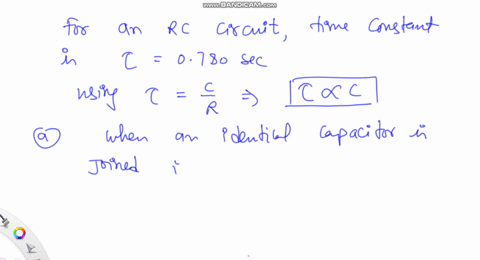 www.BANDICAM.com
for an RC circuit, time constant
is τ = 0.780 sec
using τ = C/R ⇒ τ ∝ C
(a) when an identical capacitor is
joined i